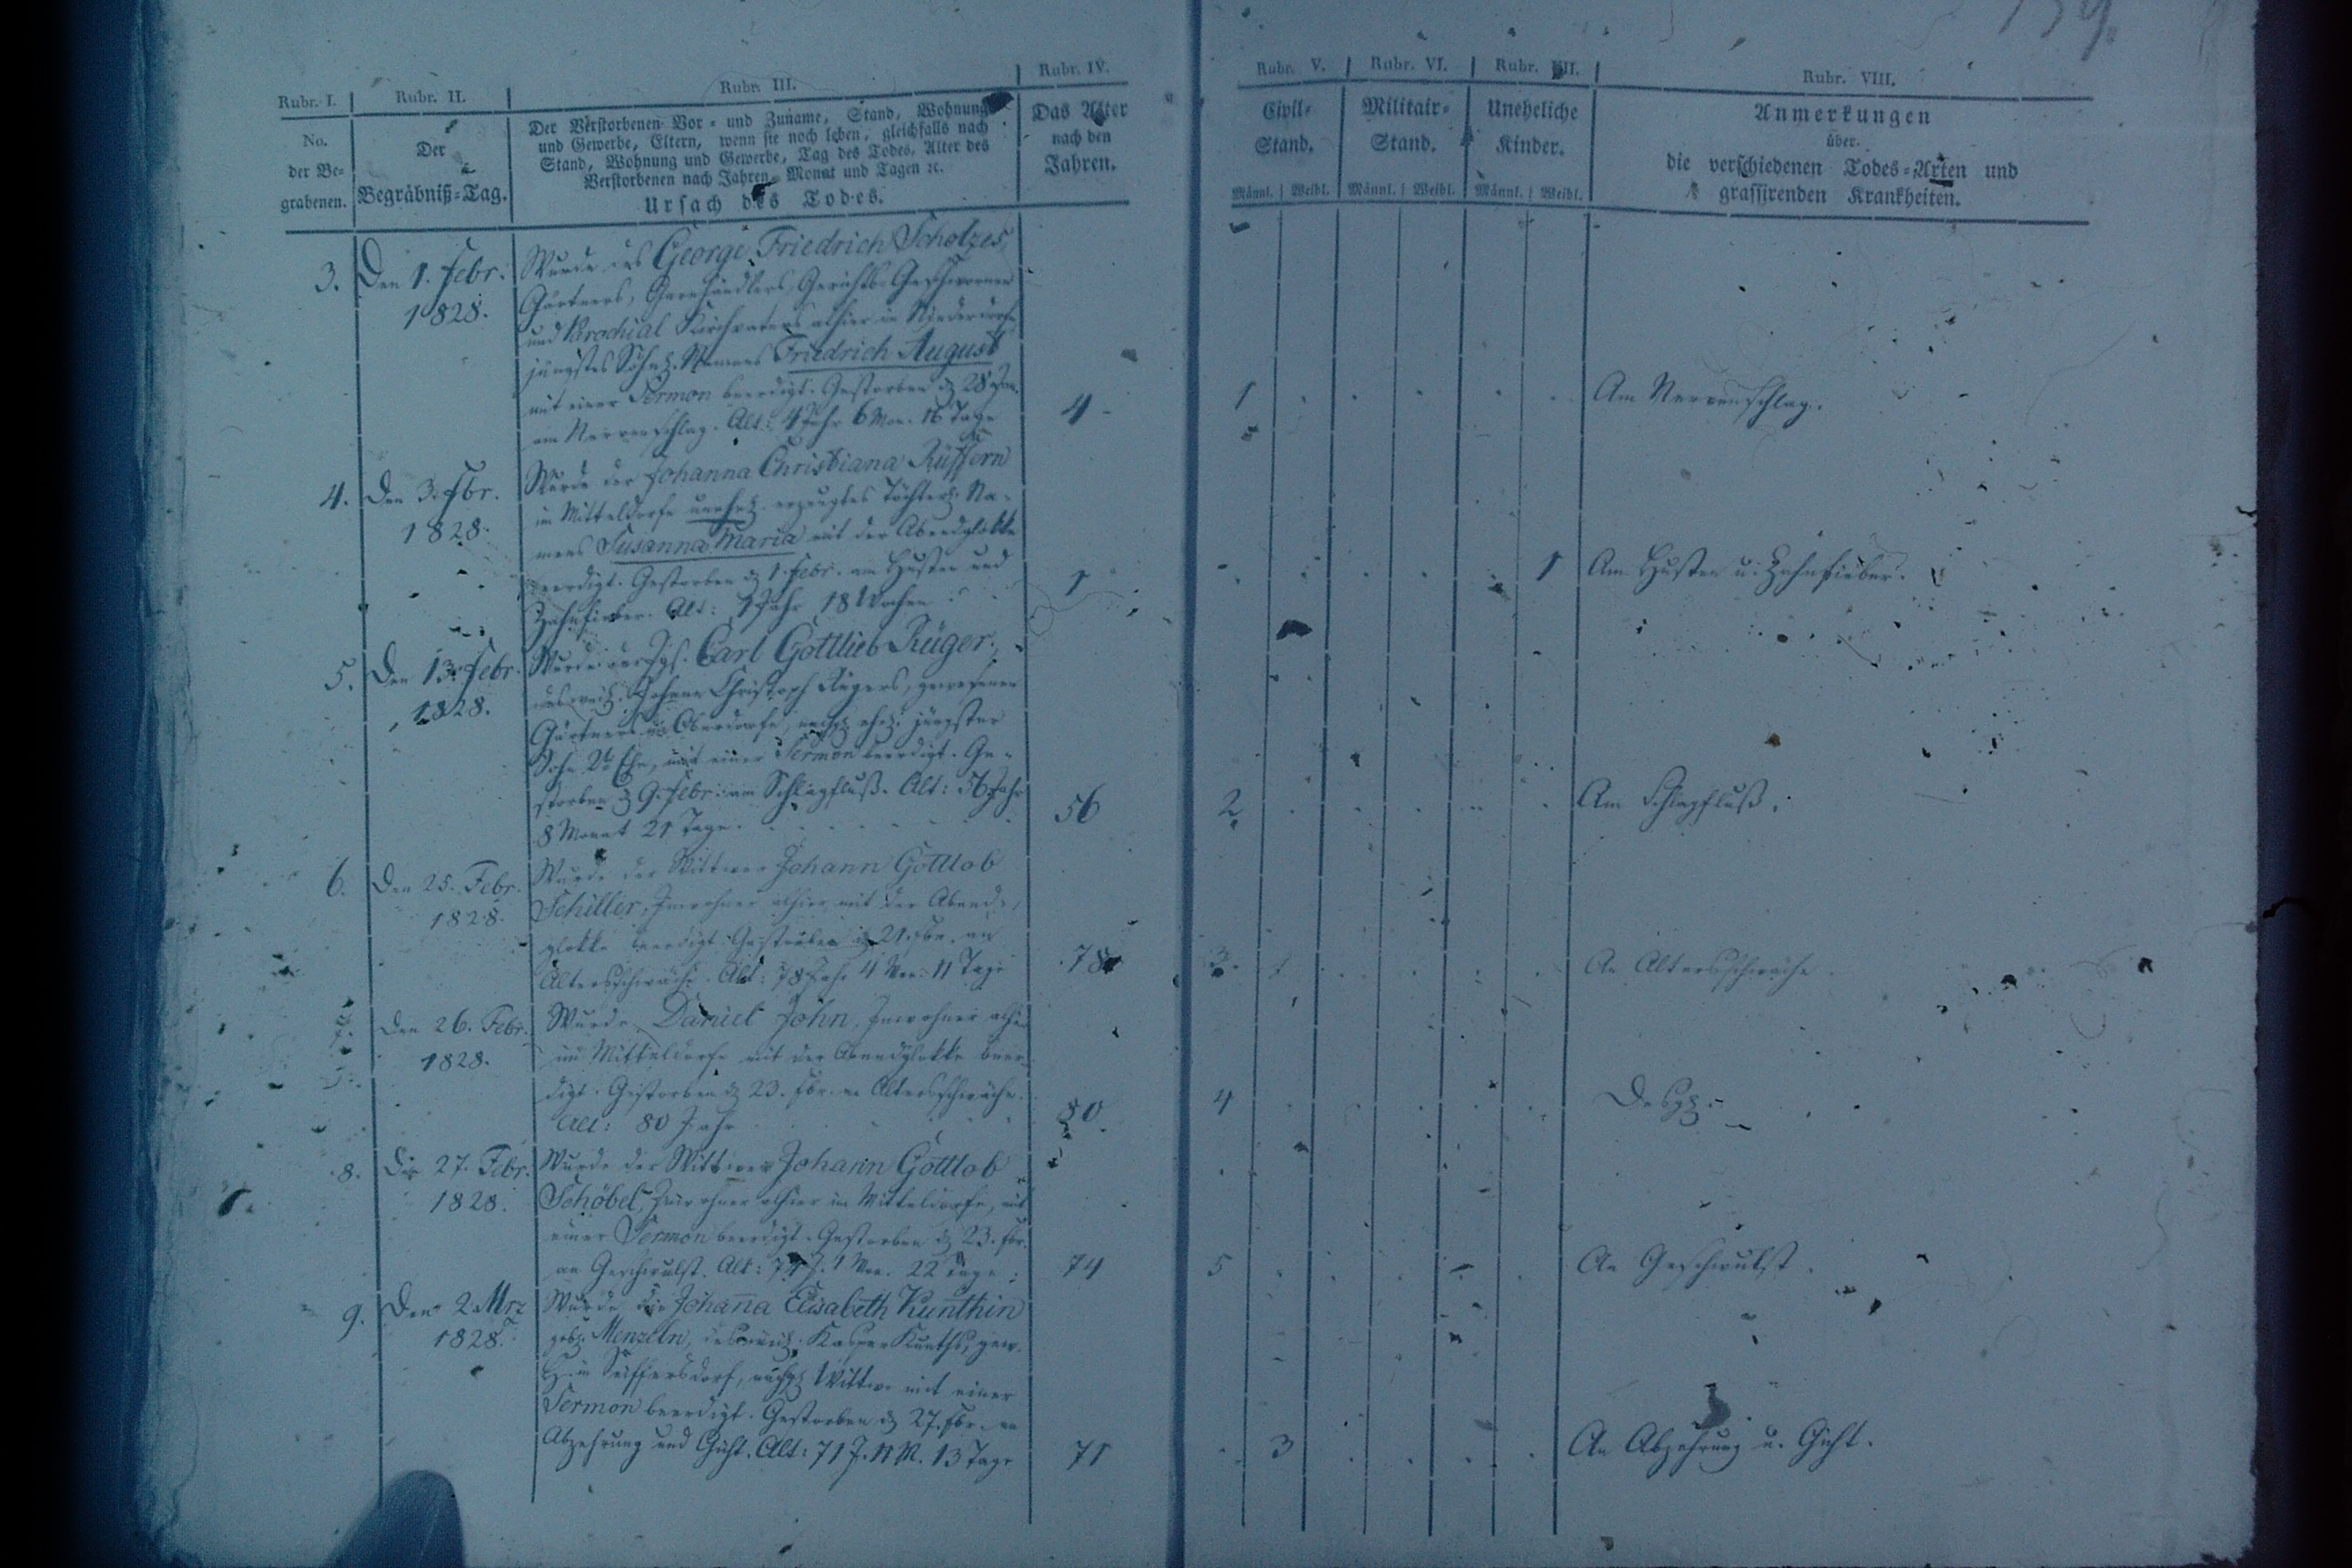 139.
Rubr. I. Rubr. II. Rubr. III. Rubr. IV. Rubr. V. Rubr. VI. Rubr. VII. Rubr. VIII.
No.
der Be-
grabenen.
Der
Begräbniß-Tag.
Der Verstorbenen Vor- und Zuname, Stand, Wohnung
und Gewerbe, Eltern, wenn sie noch leben, gleichfalls nach
Stand, Wohnung und Gewerbe, Tag des Todes, Alter des
Verstorbenen nach Jahren, Monat und Tagen ꝛc.
Ursach des Todes.
Das Alter
nach den
Jahren.
Civil-
Stand.
Männl. Weibl.
Militair-
Stand.
Männl. Weibl.
Uneheliche
Kinder.
Männl. Weibl.
Anmerkungen
über
die verschiedenen Todes-Arten und
grassirenden Krankheiten.
3. Den 1. Febr.
1828.
Wurde des George Friedrich Scholzes,
Gärtners, Garnhändlers, Gerichts-Geschwornen
und Parochial Kirchvaters alhier in Niederdorfe
jüngstes Söhnl. Namens Friedrich August
mit einer Sermon beerdigt. Gestorben d. 28 Jan.
am Nervenschlag. Alt: 4 Jahr 6 Mon. 16 Tage
4 1 Am Nervenschlag.
4. Den 3. Fbr.
1828.
Wurde der Johanna Christiana Rüffern
im Mitteldorfe unehel. erzeugtes Töchterl. Na-
mens Susanna Maria mit der Abendglokke
beerdigt. Gestorben d. 1. Febr. am Husten und
Zahnfieber. Alt: 1 Jahr 18 Wochen
1 1 Am Husten u. Zahnfieber.
5. Den 13. Febr.
1828.
Wurde der Jgs. Carl Gottlieb Rüger,
des weil. Johann Christoph Rügers, gewesenen
Gärtners in Oberdorfe, nachgl. ehel. jüngster
Sohn 2r Ehe, mit einer Sermon beerdigt. Ge-
storben d. 9. Febr. am Schlagfluß. Alt: 56 Jahr
8 Monat 21 Tage.
56 2. Am Schlagfluß.
6. Den 25. Febr.
1828.
Wurde der Wittwer Johann Gottlob
Schiller, Inwohner alhier mit der Abend-
glokke beerdigt. Gestorben d. 21. Fbr. an
Altersschwäche. Alt: 78 Jahr 4 Mon. 11 Tage
78 3. An Altersschwäche.
7. Den 26. Febr.
1828.
Wurde Daniel John, Inwohner alhier
im Mitteldorfe mit der Abendglokke beer-
digt. Gestorben d. 23. Fbr. an Altersschwäche.
Alt: 80 Jahr
80. 4 Desgl.
8. Den 27. Febr.
1828.
Wurde der Wittwer Johann Gottlob
Schöbel, Inwohner alhier im Mitteldorfe, mit
einer Sermon beerdigt. Gestorben d. 23. Fbr.
an Geschwulst. Alt: 74 J. 1 Mon. 22 Tage
74 5 An Geschwulst.
9. Den 2. Mrz
1828.
Wurde die Johanna Elisabeth Kunthin
gebl. Menzeln, des weil. Kasper Kunths, gew.
in Seiffersdorf, nachgl. Wittwe mit einer
Sermon beerdigt. Gestorben d. 27. Fbr. an
Abzehrung und Gicht. Alt: 71 J. 11 M. 13 Tage
71 3 An Abzehrung u. Gicht.